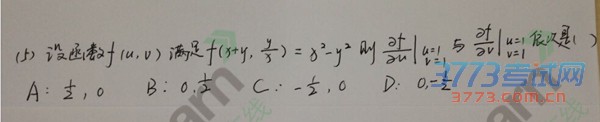 (5) 设函数f(u,v) 满足f(x+y, y/x) = x²-y² 则 ∂f/∂u|u=1 v=1 与 ∂f/∂v|u=1 v=1 依次是( )
A: 1/2, 0 B: 0, 1/2 C: -1/2, 0 D: 0, -1/2
3773考试网
www.3773.com.cn